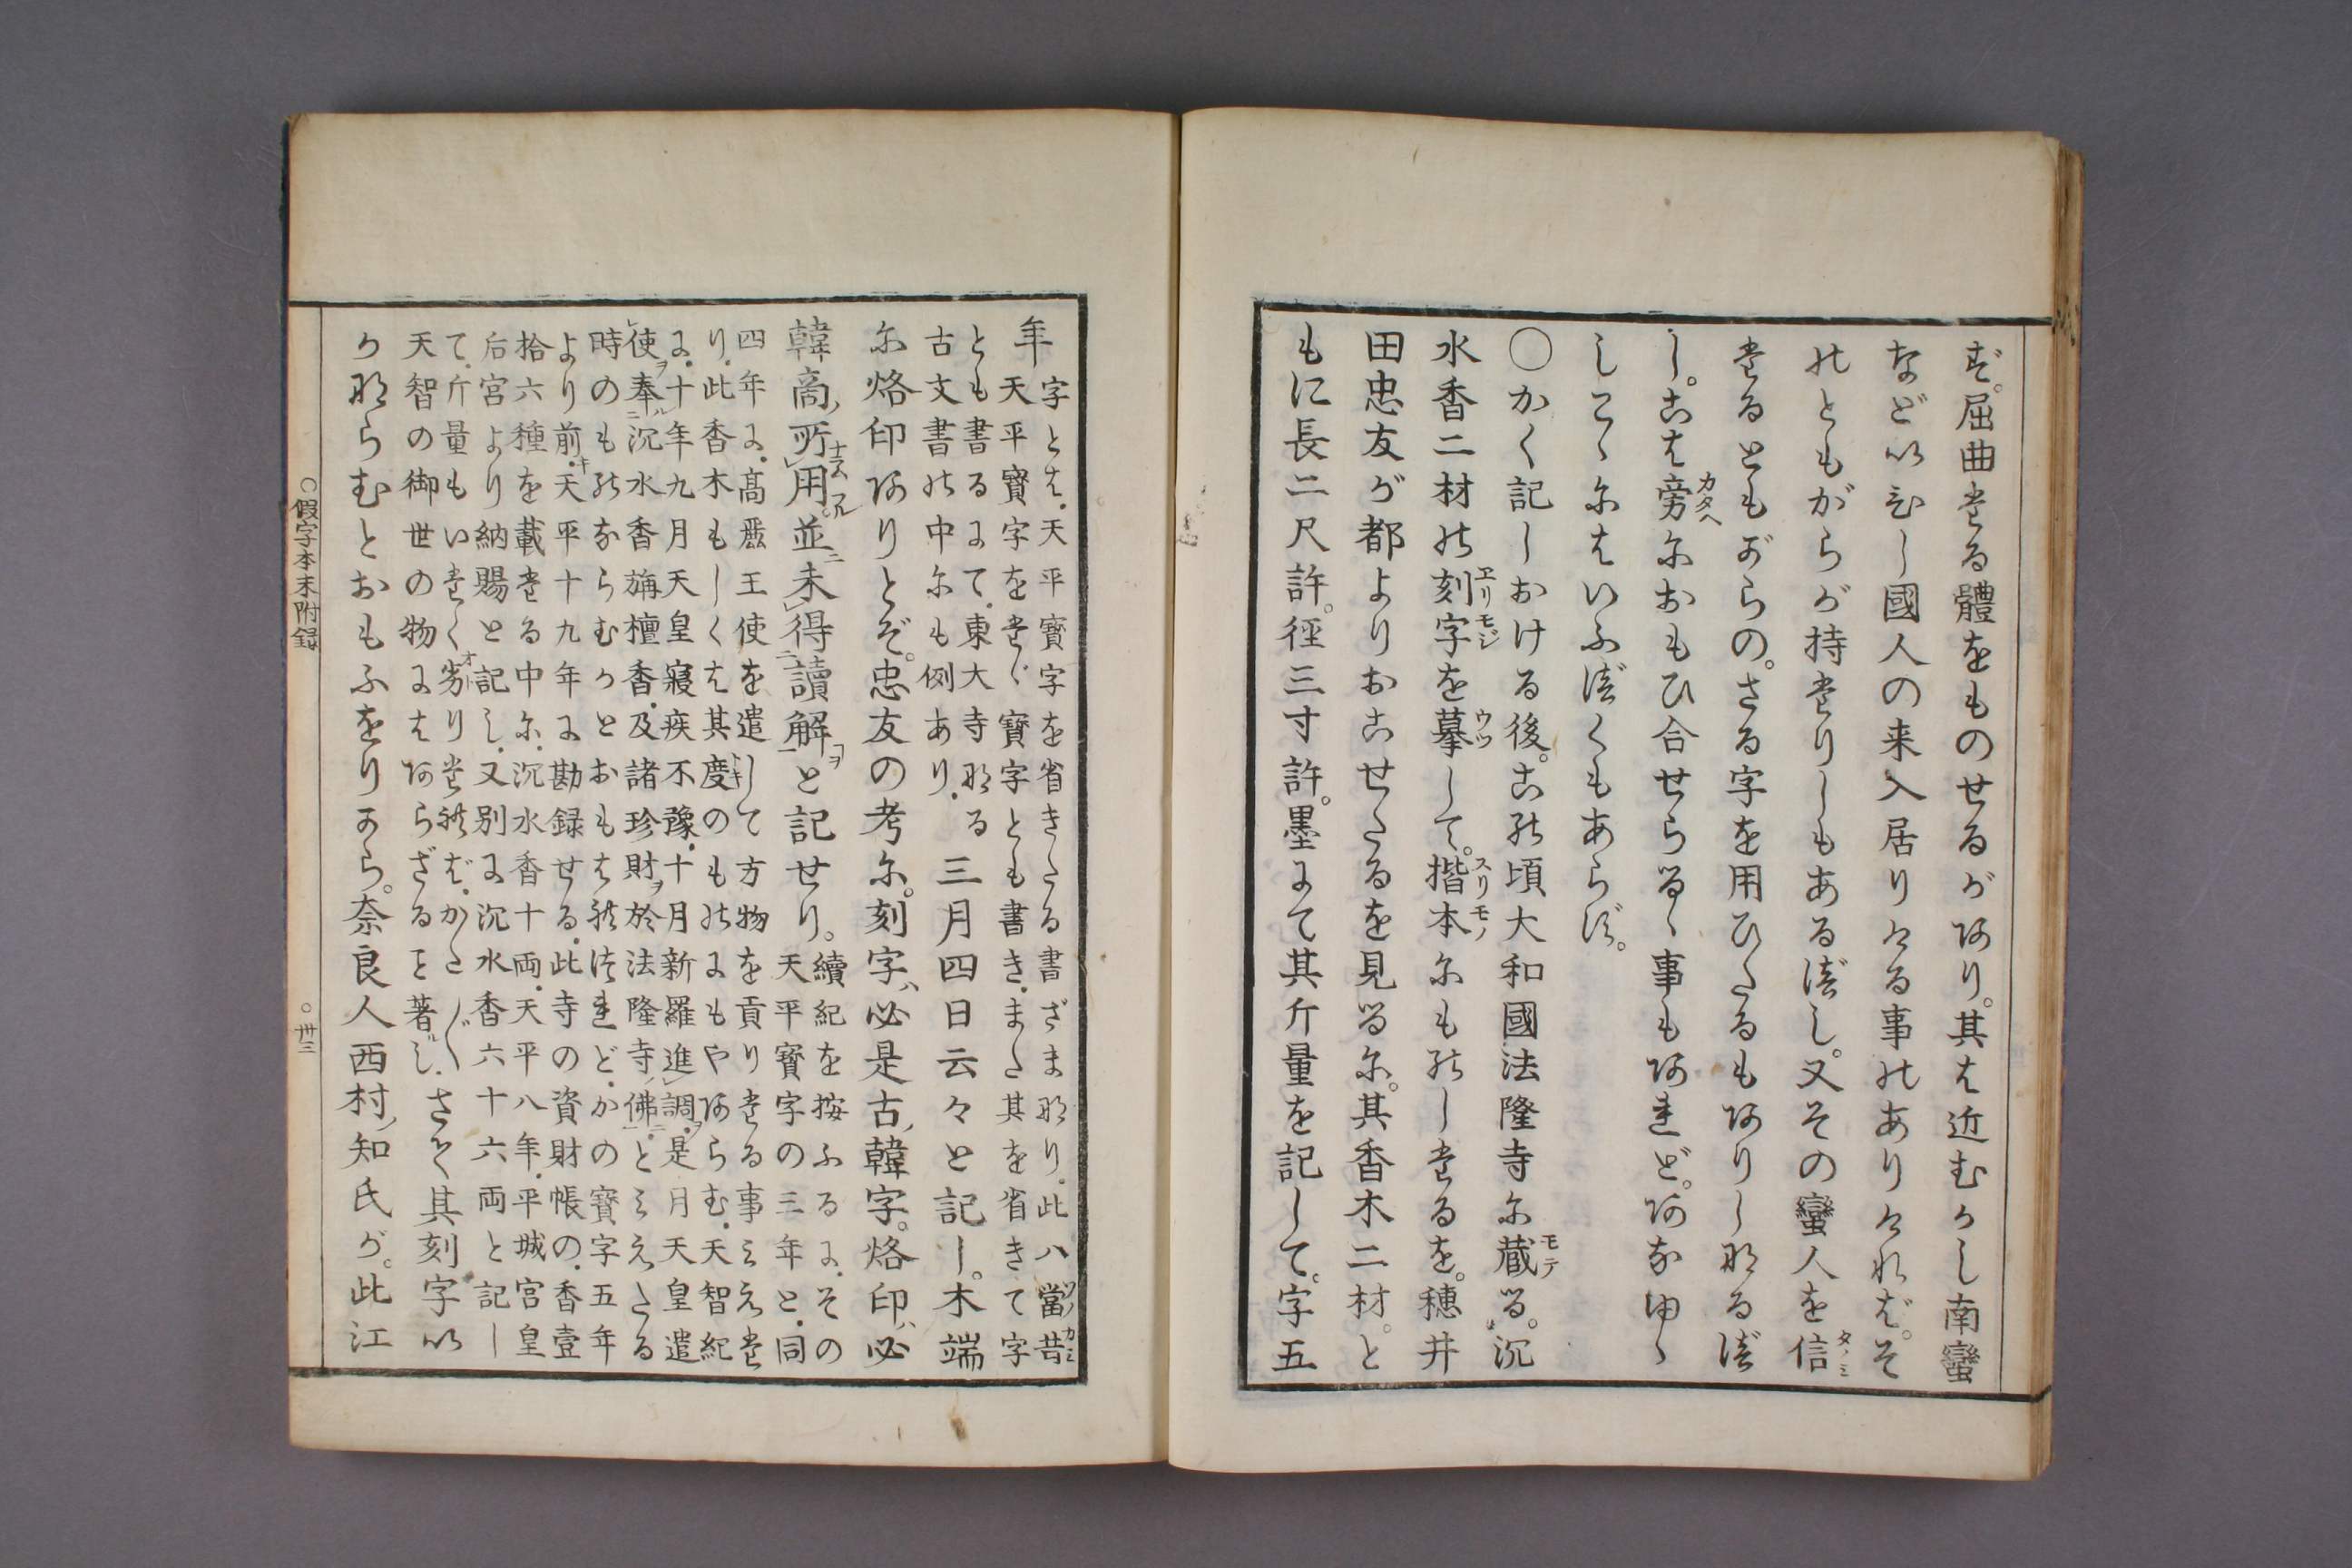 ず。屈曲たる體をものせるがあり。其は近むかし南蠻
などいひし國人の来入居りける事のありければ。そ
のともがらが持たりしもあるべし。又その蠻人を信タノミ
たるともがらの。さる字を用ひたるもありしなるべ
し。こは旁カタヘにおもひ合せらるゝ事もあれど。あなゆゝ
しこゝにはいふべくもあらず。
○かく記しおける後。この頃大和國法隆寺に蔵モテる。沉
水香二材の刻字ヱリモジを摹ウツして。揩本スリモノにものしたるを。穗井
田忠友が都よりおこせたるを見るに。其香木二材。と
もに長二尺許。徑三寸許。墨にて其斤量を記して。字五
年
字とは、天平寳字を省きたる書ざまなり、此ハ當昔ソノカミ
天平寳字をたゞ寳字とも書き、また其を省きて字
とも書るにて、東大寺なる
古文書の中にも例あり、
三月四日云々と記し。木端
に烙印ありとぞ。忠友の考に。刻字ハ必是古ノ韓字。烙印ハ必
韓商ノ所レ用ナラム。並ニ未レ得二讀解一ヲと記せり。
續紀を按ふるに、その
天平寳字の三年と、同
四年に、高麗王使を遣して方物を貢りたる事みえた
り、此香木もしくは其度トキのものにもやあらむ、天智紀
に、十年九月天皇寝疾不豫、十月新羅進レ調ヲ、是月天皇遣
レ使ヲ奉二ル沉水香旃檀香、及諸珍財ヲ於法隆寺ノ佛一ニ、とみえたる
時のものならむかとおもはれつれど、かの寳字五年
より前サキ、天平十九年に勘録せる、此寺の資財帳の、香壹
拾六種を載たる中に、沉水香十両、天平八年、平城宮皇
后宮より納賜と記し、又別に沉水香六十六両と記し
て、斤量もいたく劣オトりたれば、かた〴〵
天智の御世の物にはあらざること著ルし、
さて其刻字い
かならむとおもふをりから。奈良人西村ノ知氏が。此江
○假字本末附録
○卅三